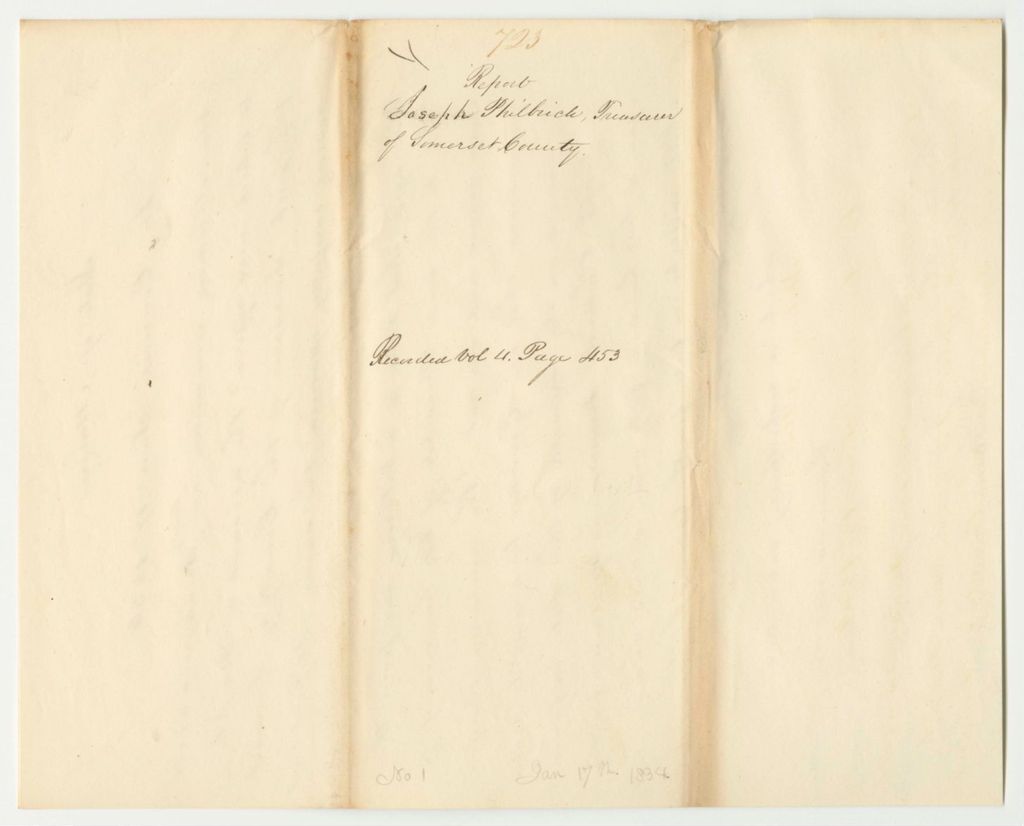 723
Report
Joseph Philbrick, Treasurer
of Somerset County.
Recorded Vol 4. Page 453
No 1 Jan 17th 1834